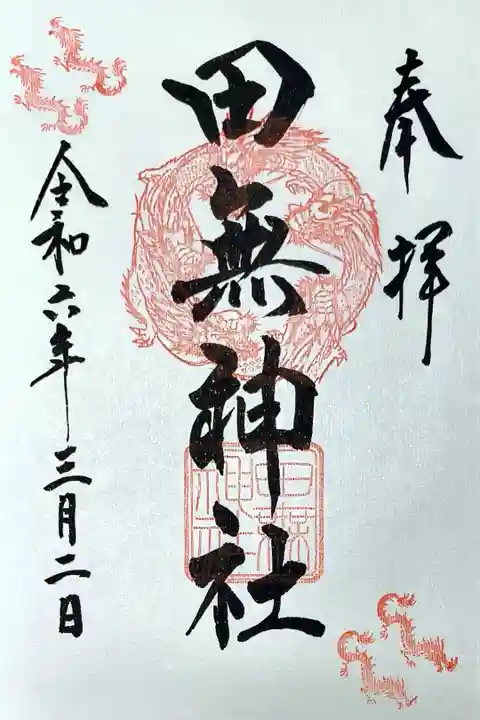 奉拝
田無神社
令和六年三月二日